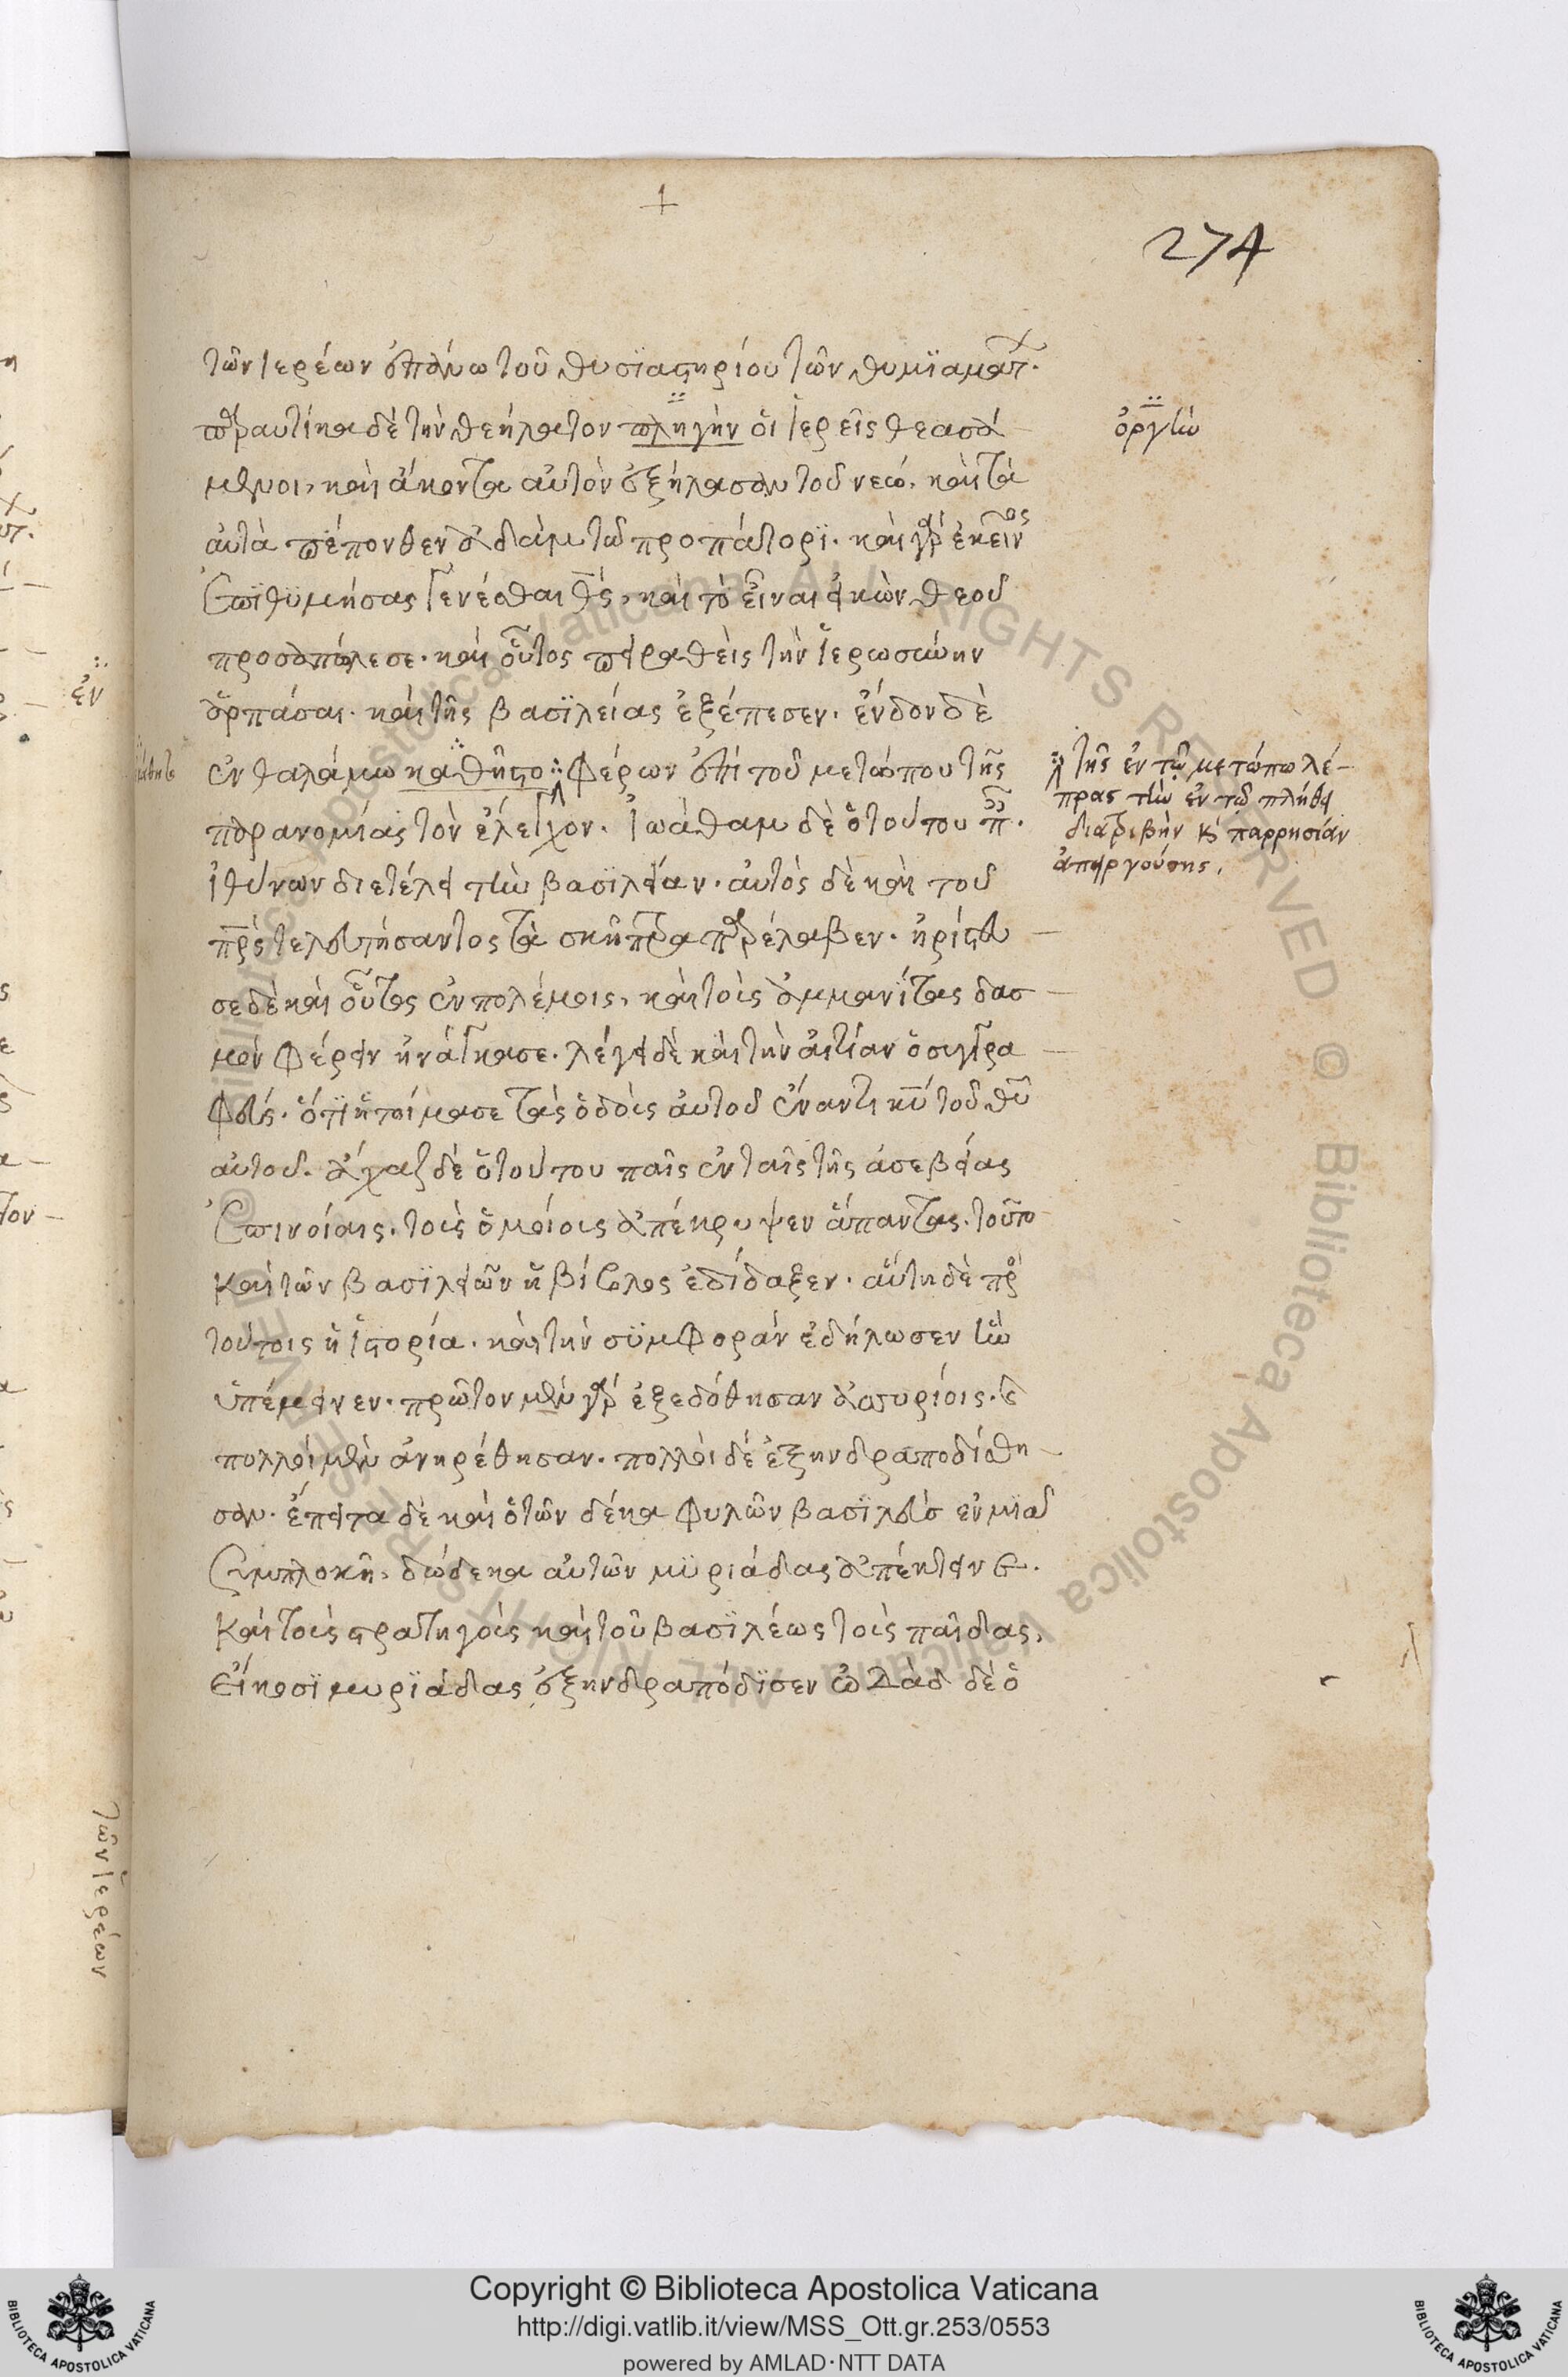 274
τῶν ἱερέων ἐπάνω τοῦ θυσϊαστηρίου τῶν θυμϊαμάτ.
παραυτίκα δὲ τὴν θεήλατον πληγὴν οἱ ἱερεῖς θεασά
μενοι, καὶ ἄκοντα αὐτὸν ἐξήλασαν τοῦ νεώ. καὶ τὰ
αὐτὰ πέπονθεν ἀδὰμ τῶ προπάτορϊ. καὶ γὰρ ἐκεῖνος
ἐπϊθϋμήσας γενέσθαι θς, καὶ τὸ εἶναι εἰκὼν θεοῦ
προσαπώλεσε. καὶ οὗτος πειραθεὶς τὴν ἱερωσύνην
ἁρπάσαι. καὶ τῆς βασϊλείας ἐξέπεσεν. ἔνδον δὲ
ἐν θαλάμω καθῆστο φέρων ἐπὶ τοῦ μετώπου τῆς
παρανομίας τὸν ἔλεγχον. Ἰωάθαμ δὲ ὁ τούτου π.
ἰθύνων διετέλει τὴν βασϊλείαν. αὐτὸς δὲ καὶ τοῦ
πρς τελευτήσαντος τὰ σκῆπτρα παρέλαβεν. ἠρίστευ
σε δὲ καὶ οὗτος ἐν πολέμοις, καὶ τοὺς ἀμμανίτας δασ
μὸν φέρειν ἠνάγκασε. λέγει δὲ καὶ τὴν αἰτίαν ὁ συγγρα
φεύς. ὅτϊ ἡτοίμασε τὰς ὁδοὺς αὐτοῦ ἔναντι κυ τοῦ θυ
αὐτοῦ. ἄχαζ δὲ ὁ τούτου παῖς ἐν ταῖς τῆς ἀσεβείας
ἐπινοίαις, τοὺς ὁμοίους ἀπέκρυψεν ἅπαντας. τοῦτο
καὶ τῶν βασϊλειῶν ἡ βίβλος ἐδίδαξεν. αὕτη δὲ πρὸς
τούτοις ἡ ἱστορία. καὶ τὴν σϋμφορὰν ἐδήλωσεν ἣν
ὑπέμεινεν. πρῶτον μὲν γὰρ ἐξεδόθησαν ἀσυρίοις. καὶ
πολλοὶ μὲν ἀνηρέθησαν. πολλοὶ δὲ ἐξηνδραποδίσθη
σαν. ἔπειτα δὲ καὶ ὁ τῶν δέκα φυλῶν βασϊλεὺσ ἐν μϊᾶ
συμπλοκῆ, δώδεκα αὐτῶν μϋριάδας ἀπέκτεινε.
καὶ τοὺς στρατηγοὺς καὶ τοῦ βασϊλέως τοὺς παῖδας,
εἴκοσϊ μυρϊάδας ἐξηνδραπόδϊσεν ὠδὰδ δὲ ὁ
ὀργὴν
τῆς ἐν τῷ μετώπω λέ-
πρας τὴν ἐν τῶ πλήθει
διατριβὴν κ παρρησίαν
ἀπειργούσης.
ἐν
τῶν ἱερέων
Copyright © Biblioteca Apostolica Vaticana
http://digi.vatlib.it/view/MSS_Ott.gr.253/0553
powered by AMLAD·NTT DATA
BIBLIOTECA APOSTOLICA VATICANA
BIBLIOTECA APOSTOLICA VATICANA